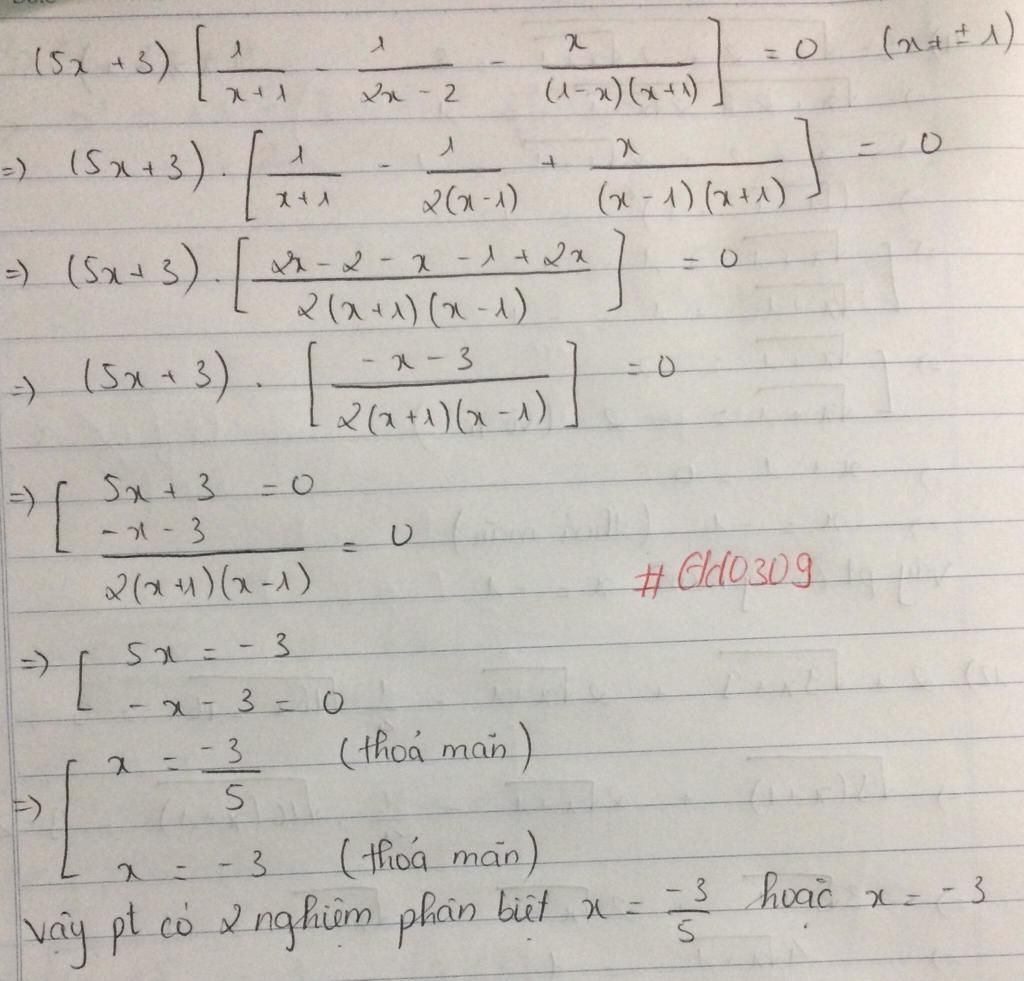 (5x + 3) [ 1/(x+1) - 1/(2x - 2) - x/((1-x)(x+1)) ] = 0 (x ≠ ± 1)
=) (5x + 3) . [ 1/(x+1) - 1/(2(x-1)) + x/((x-1)(x+1)) ] = 0
=) (5x + 3) . [ (2x - 2 - x - 1 + 2x)/(2(x+1)(x-1)) ] = 0
=) (5x + 3) . [ (-x - 3)/(2(x+1)(x-1)) ] = 0
=) [ 5x + 3 = 0
(-x - 3)/(2(x+1)(x-1)) = 0
#GH0309
=) [ 5x = - 3
- x - 3 = 0
=) [ x = -3/5 (thoả mãn)
x = - 3 (thoả mãn)
Vậy pt có 2 nghiệm phân biệt x = -3/5 hoặc x = - 3